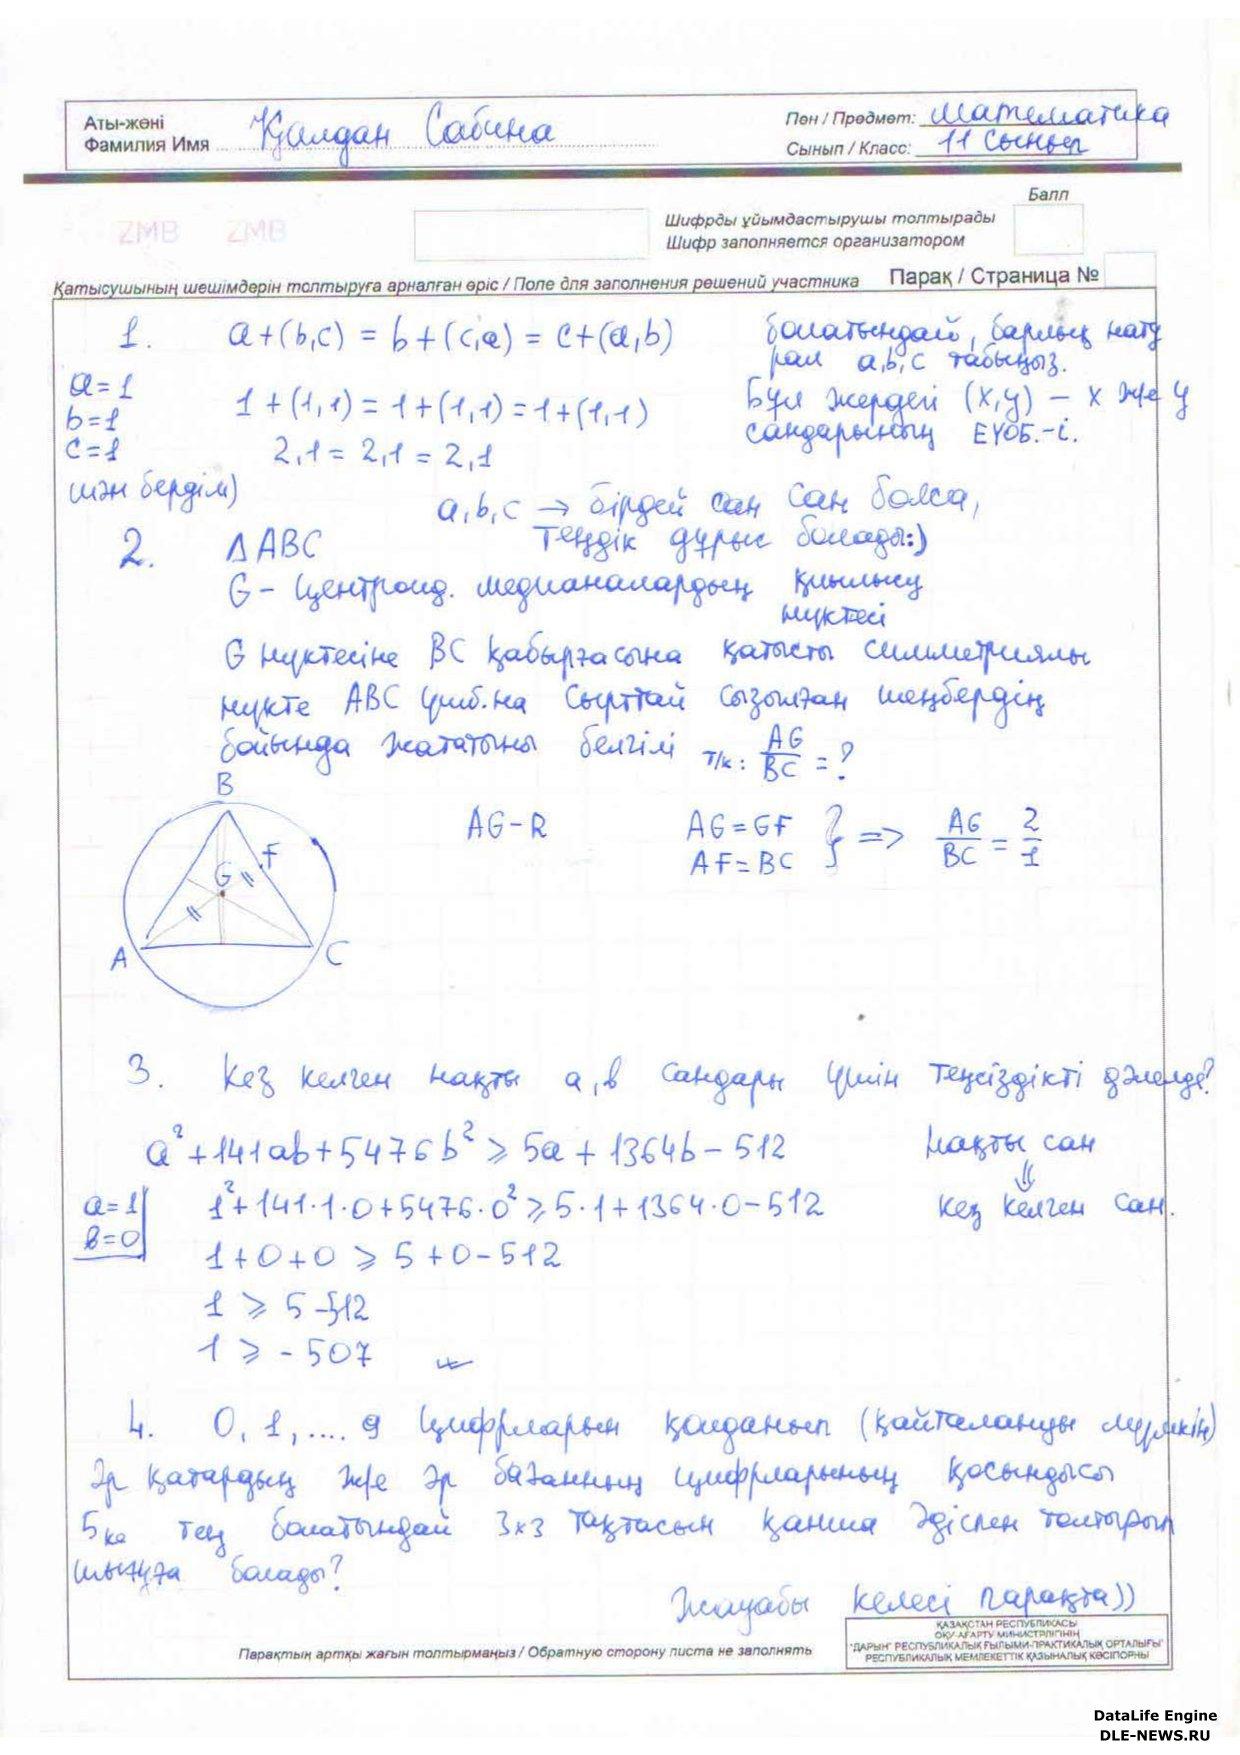 Аты-жөні
Фамилия Имя Қалдан Сабина
Пән / Предмет: Математика
Сынып / Класс: 11 сынып
Балл
ZMB ZMB
Шифрды ұйымдастырушы толтырады
Шифр заполняется организатором
Қатысушының шешімдерін толтыруға арналған өріс / Поле для заполнения решений участника Парақ / Страница №
1. a+(b,c) = b+(c,a) = c+(a,b) болатындай, барлық нату
рал a,b,c табыңыз.
a=1
b=1 1+(1,1)=1+(1,1)=1+(1,1) Бұл жердегі (x,y) – x және y
c=1 2,1=2,1=2,1 сандарының ЕҮОБ.-і.
мән бердім)
a,b,c → бірдей сан сан болса,
теңдік дұрыс болады:)
2. Δ ABC
G – центроид. медианалардың қиылысу
нүктесі
G нүктесіне BC қабырғасына қатысты симметриялы
нүкте ABC үшб.на сырттай сызылған шеңбердің
бойында жататыны белгілі т/к: AG/BC = ?
B
F
G
A C
AG – R AG = GF
AF = BC } => AG/BC = 2/1
3. Кез келген нақты a,b сандары үшін теңсіздікті дәлелде?
a²+141ab+5476b² ⩾ 5a+1364b–512 Нақты сан
⇓
a=1 1²+141·1·0+5476·0² ⩾ 5·1+1364·0–512 кез келген сан.
b=0
1+0+0 ⩾ 5+0–512
1 ⩾ 5–512
1 ⩾ –507
4. 0, 1, .... 9 цифрларын қолданып (қайталануы мүмкін)
Әр қатардың және әр бағанның цифрларының қосындысы
5ке тең болатындай 3x3 тақтасын қанша әдіспен толтырып
шығуға болады?
Жауабы келесі парақта))
Парақтың артқы жағын толтырмаңыз / Обратную сторону листа не заполнять
ҚАЗАҚСТАН РЕСПУБЛИКАСЫ
ОҚУ-АҒАРТУ МИНИСТРЛІГІНІҢ
"ДАРЫН" РЕСПУБЛИКАЛЫҚ ҒЫЛЫМИ-ПРАКТИКАЛЫҚ ОРТАЛЫҒЫ"
РЕСПУБЛИКАЛЫҚ МЕМЛЕКЕТТІК ҚАЗЫНАЛЫҚ КӘСІПОРНЫ
DataLife Engine
DLE-NEWS.RU